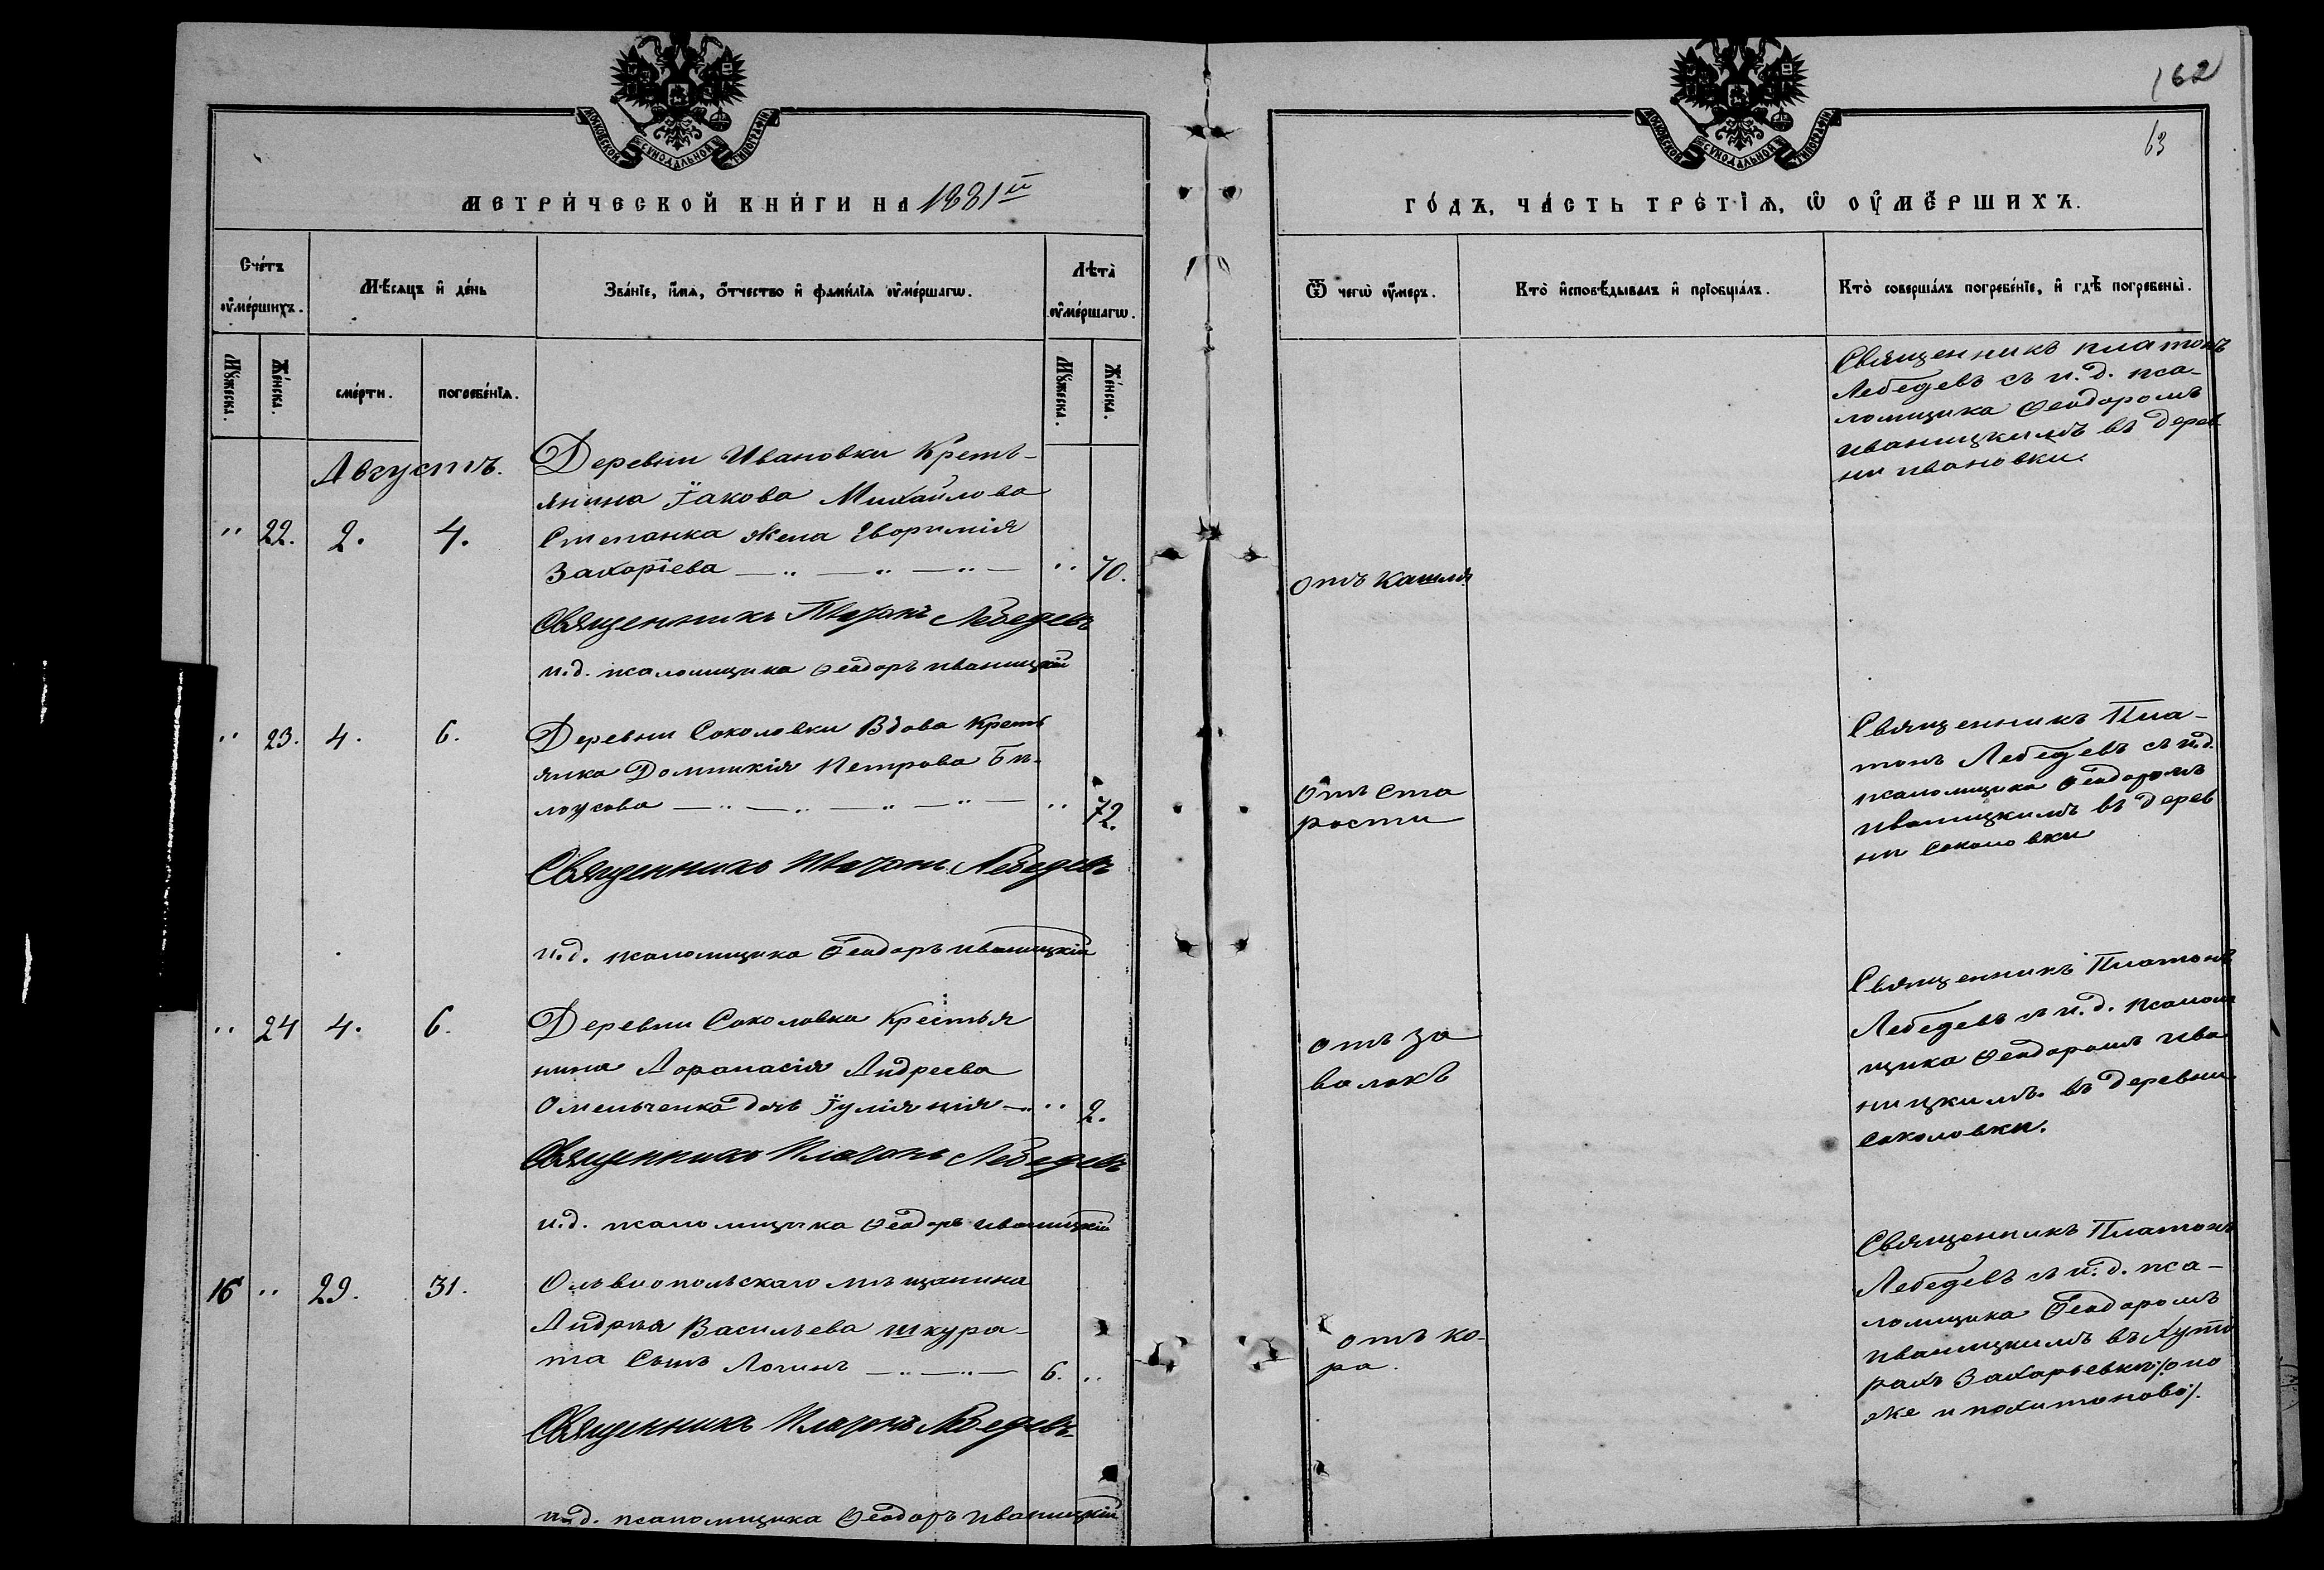 162
63
МОСКОВСКОЙ СѴНОДАЛЬНОЙ ТИПОГРАФІИ
МОСКОВСКОЙ СѴНОДАЛЬНОЙ ТИПОГРАФІИ
МЕТРИ́ЧЕСКОЙ КНИ́ГИ НА 1881й
ГО́ДЪ, ЧА́СТЬ ТРЕ́ТІѦ, Ѡ ОУМЕ́РШИХЪ.
Сче́тъ оуме́ршихъ.
Мѣ́сяцъ и де́нь
Зва́ніе, и́мя, о́тчество и фами́лія оуме́ршагѡ.
Лѣта̀ оуме́ршагѡ.
Ѿ чегѡ̀ оу́меръ.
Кто̀ исповѣ́дывалъ и пріобща́лъ.
Кто̀ соверша́лъ погребе́ніе, и гдѣ̀ погребены̀.
Му́жеска.
Же́нска.
сме́рти.
погребе́нія.
Му́жеска.
Же́нска.
Августъ.
Деревни Ивановки Крестъ-
янина Іакова Михайлова
" 22. 2. 4. Степанка жена Евфимія
Захоріева — " — " — " — " 70.
Священникъ Платонъ Лебедевъ
и.д. псаломщика Ѳеодоръ иваницкій
отъ кашля
Священникъ платонъ
Лебедевъ съ и.д. пса-
ломщика Ѳеодоромъ
иваницкимъ въ дерев
ни ивановки.
" 23. 4. 6. Деревни Соколовки Вдова Кресть
янка Домникія Петрова Би-
лоусова — " — " — " — " — " 72.
Священникъ Платонъ Лебедевъ
и.д. псаломщика Ѳеодоръ иваницкій
отъ ста
рости
Священникъ Пла-
тонъ Лебедевъ съ и.д.
псаломщика Ѳеодоромъ
иваницкимъ въ дерев
ни Соколовки
" 24 4. 6. Деревни Соколовка Крестья
нина Афанасія Андреева
Омельченка дочь Іуліянія — " " 2.
Священникъ Платонъ Лебедевъ
и.д. псаломщика Ѳеодоръ иваницкій
отъ за
валокъ
Священникъ Платонъ
Лебедевъ съ и.д. псалом
щика Ѳеодоромъ ива
ницкимъ въ деревни
Соколовки.
16 " 29. 31. Ольвіопольскаго мѣщанина
Андрея Васильева шкура-
та Сынъ Логинъ — " — " — 6. "
Священникъ Платонъ Лебедевъ
и.д. псаломщика Ѳеодоръ иваницкій
отъ ко-
ра.
Священникъ Платонъ
Лебедевъ съ и.д. пса-
ломщика Ѳеодоромъ
иваницкимъ въ Хуто
рахъ Захарьевки ./. оно
же и похитоново ./.